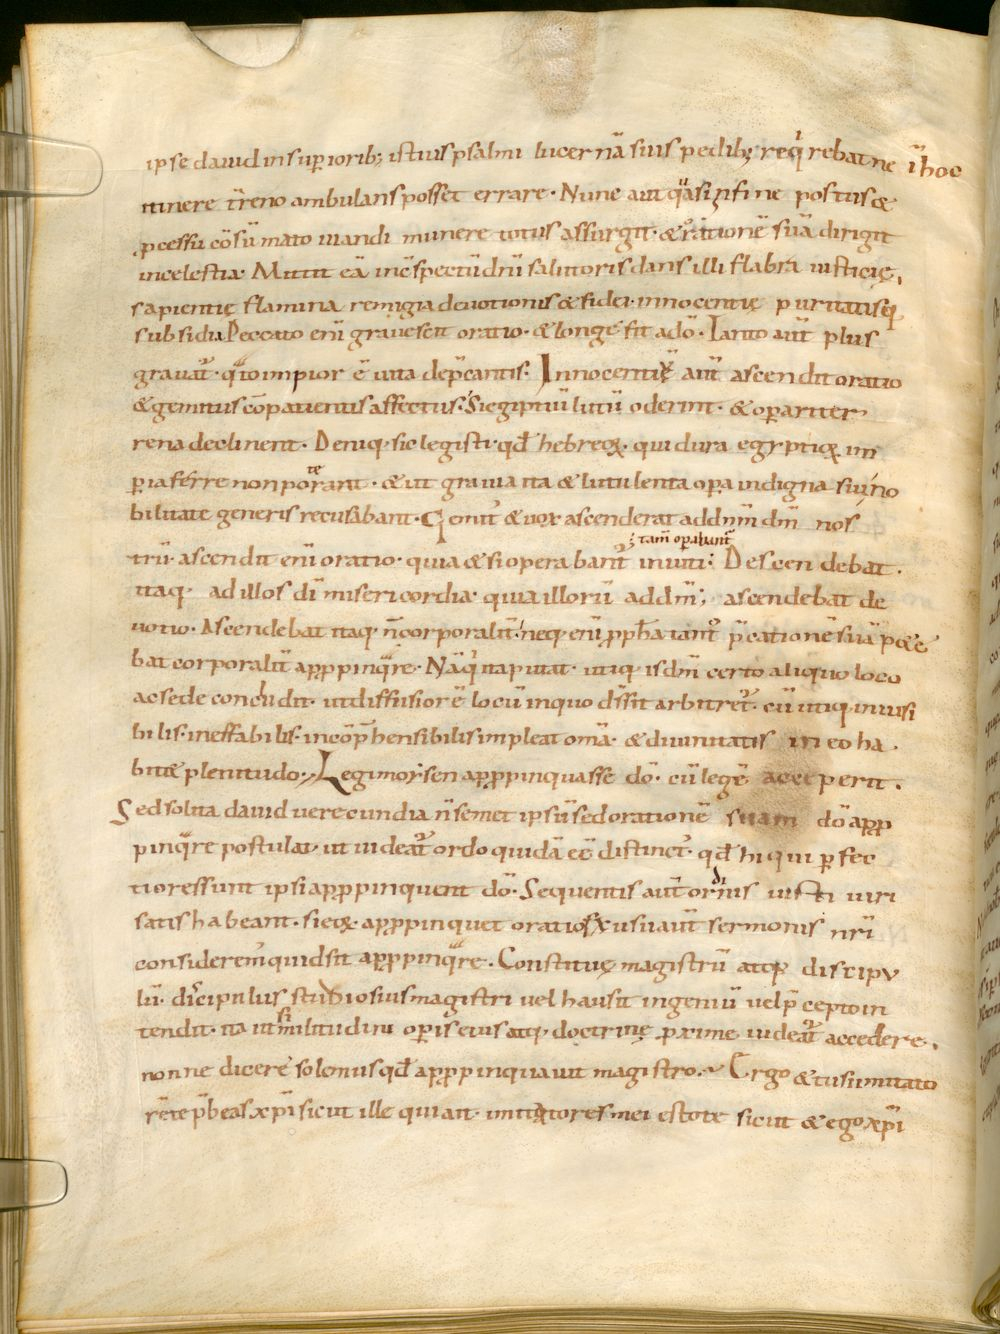 ipse dauid in sup̱iorib; istius psalmi lucernā suis pedib; req̇rebat ne ī hoc
itinere t̄reno ambulans posset errare· Nunc aut̄ q̈asi in fine positus &
ꝓcessu cōsūmato uiuendi munere totus assurgit· & orationē suā dirigit
in celestia· Mittit eā in cōspectū dn̄i saluatoris dans illi flabra iusticię,
sapientię flamina remigia deuotionis & fidei· innocentię puritatisq;
subsidia Peccato eni̅ grauescit oratio· & longe fit a dō· Tanto aut̄ plus
grauat᷑· q̈nto impior ē uita dep̄cantis· Innocentiū aut̄ ascendit oratio
& gemitus cōpatientis affectus· Si egiptiū lutū oderint· & oṗa rite
rena declinent· Deniq; sic legisti· qd̄ hebreoꝝ· qui dura egyptioꝝ im
peria ferre non poterant· & ut grauia ita & lutulenta oꝑa indigna sui no
bilitate generis recusabant· Gemit᷑ & uox ascenderat ad dn̄m dm̄ nos
trū· ascendit eni̅ oratio· quia & si operabant᷑ inuiti tam̄ oꝑabant᷑· Descendebat·
itaq; ad illos dī misericordia· quia illorū ad dm̄; ascendebat de
uotio· Ascendebat itaq; n̄ corporalit̄· neq; eni̅ ꝓph̄a iant᷑ p̄cationē suā
bat corporalit̄ apꝓpinq̈re· Nā q̇ ita putat· utiq; is dm̄ certo aliquo loco
ac sede concludit· ut diffusior ē locū in quo d̄s sit arbitret᷑· cū utiq; inuisi
bilis· ineffabilis· incōp̄hensibilis impleat om̄a· & diuinitatis in eo ha·
bit& plenitudo· Legi moysen apꝓpinquasse dō· cū legē acceperit·
Sed solita dauid uerecundia n̄ semet ipsū sed orationē suam dō apꝓ
pinq̈re postulat· ut uideat᷑ ordo quidā eē distinct᷑· qd̄ hi qui ꝑfec
tiores sunt ipsi apꝓpinquent dō· Sequentis aut̄ ordinis iusti uiri
satis habeant· si eoꝝ· apꝓpinquet oratio· Ex usu aut̄ sermonis nr̄i
consideremꝰ quid sit apꝓpinq̈re· Constitue magistrū atq; discipu
lū· discipulus studio sui magistri uel hausit ingeniū uel p̄cepto in
tendit· ita ut similitudini oꝑis eius atq; doctrinę ꝓxime uideat᷑ accedere·
nonne dicere solemus qd̄ apꝓpinquauit magistro· Ergo & tu si imitato
rē te p̄beas xp̄i sicut ille qui ait· imitatores mei estote sicut & ego xp̄i